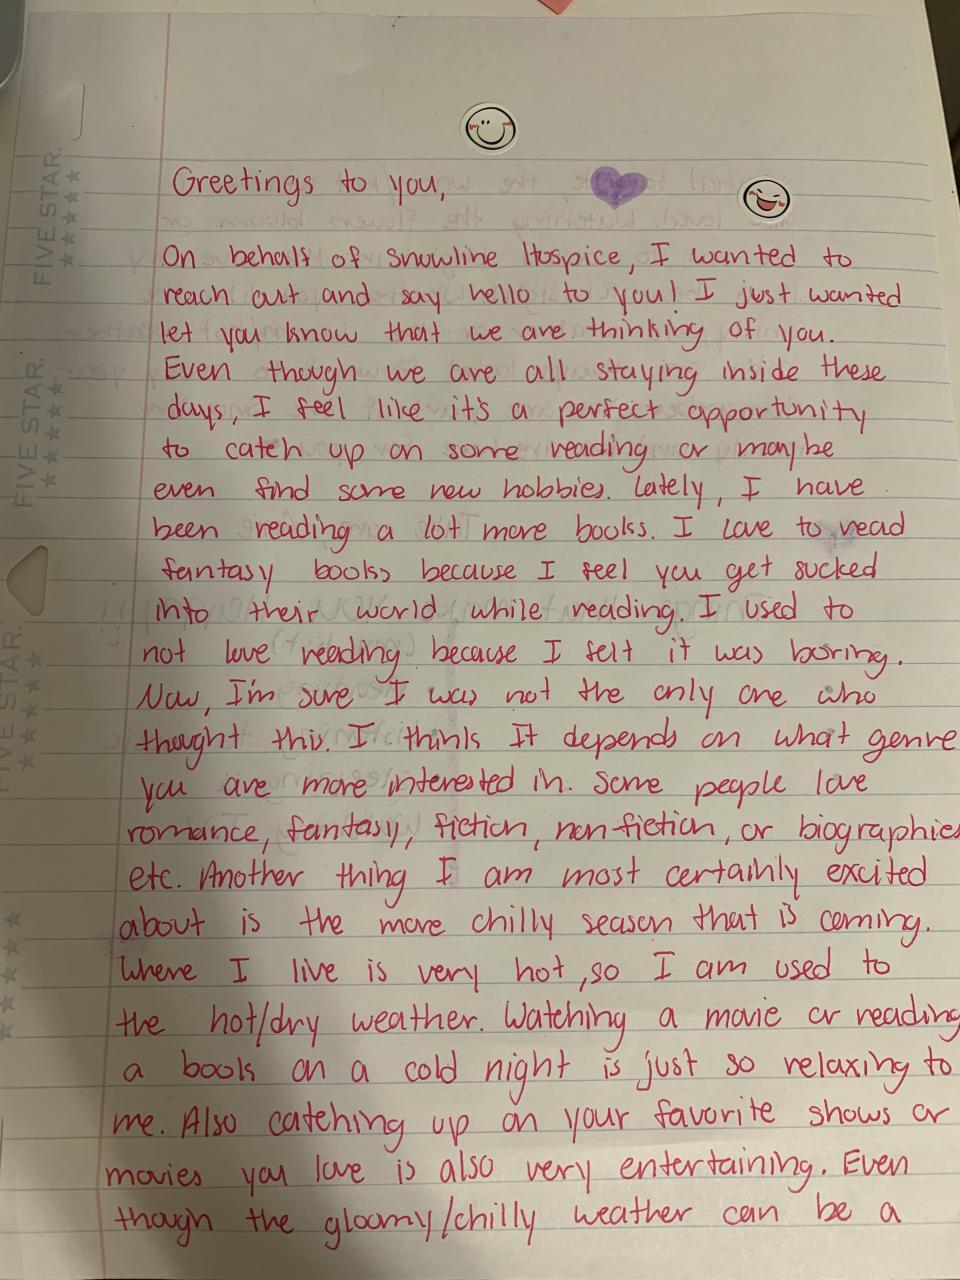 Greetings to you,
On behalf of Snowline Hospice, I wanted to
reach out and say hello to you! I just wanted
let you know that we are thinking of you.
Even though we are all staying inside these
days, I feel like it's a perfect opportunity
to catch up on some reading or maybe
even find some new hobbies. Lately, I have
been reading a lot more books. I love to read
fantasy books because I feel you get sucked
into their world while reading. I used to
not love reading because I felt it was boring.
Now, I'm sure I was not the only one who
thought this. I think It depends on what genre
you are more interested in. Some people love
romance, fantasy, fiction, non-fiction, or biographies
etc. Another thing I am most certainly excited
about is the more chilly season that is coming.
Where I live is very hot, so I am used to
the hot/dry weather. Watching a movie or reading
a book on a cold night is just so relaxing to
me. Also catching up on your favorite shows or
movies you love is also very entertaining. Even
though the gloomy/chilly weather can be a
FIVE STAR.
FIVE STAR.
FIVE STAR.